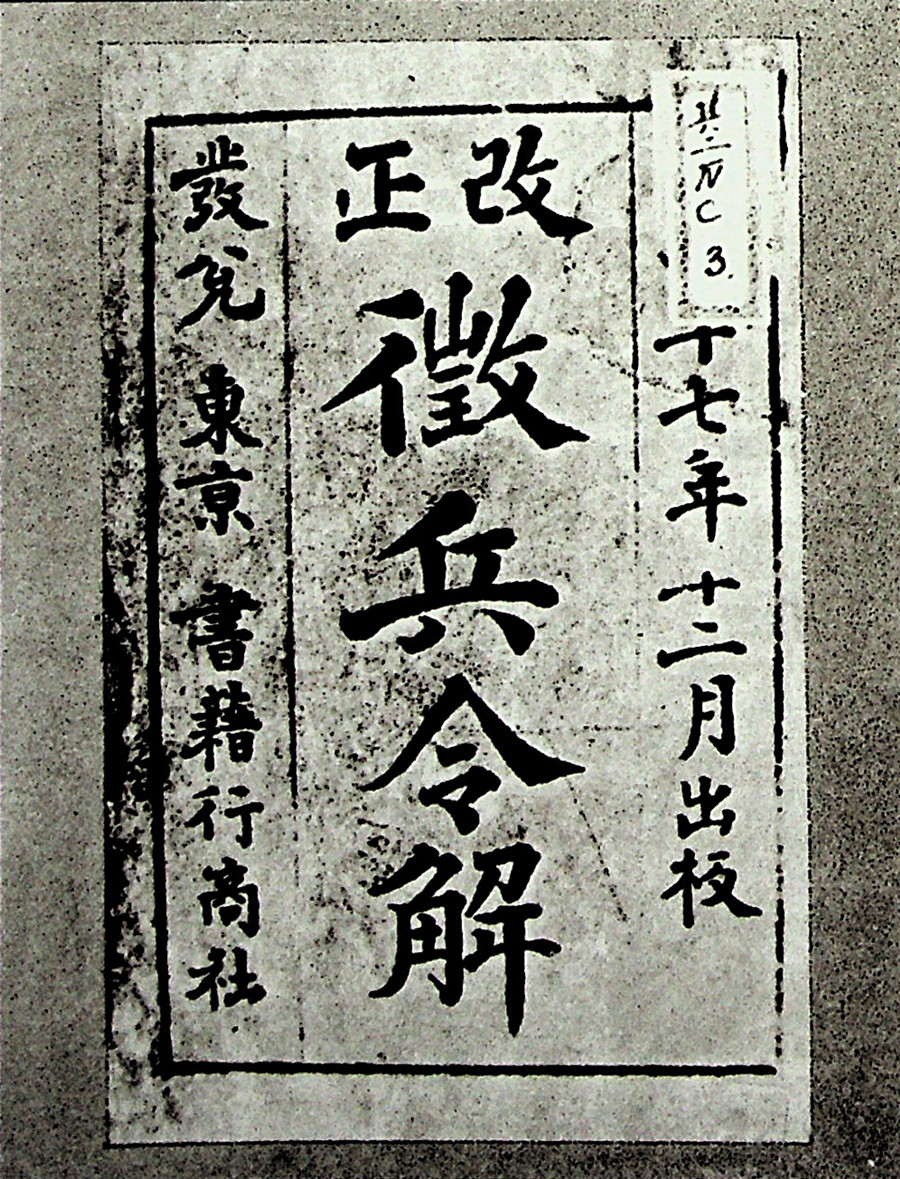 十七年十二月出板
改正
徴兵令解
發兌 東京 書籍行商社
N
C
3.